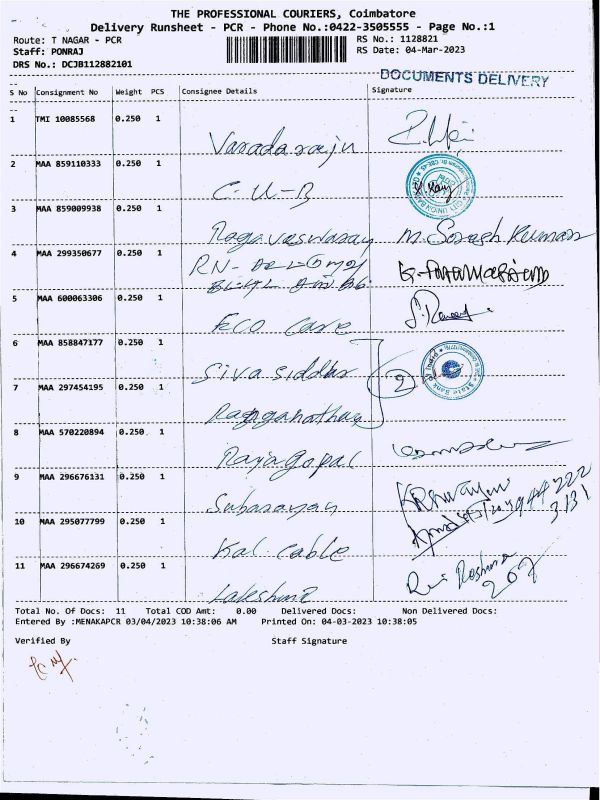 THE PROFESSIONAL COURIERS, Coimbatore
Delivery Runsheet - PCR - Phone No.:0422-3505555 - Page No.:1
Route: T NAGAR - PCR
RS No.: 1128821
Staff: PONRAJ
RS Date: 04-Mar-2023
DRS No.: DCJB112882101
DOCUMENTS DELIVERY
S No Consignment No Weight PCS Consignee Details Signature
1 TMI 10085568 0.250 1
Varadaraju
2 MAA 859110333 0.250 1
C-U-B
3 MAA 859009938 0.250 1
Ragavaswamy M. Suresh Kumar
4 MAA 299350677 0.250 1
RN-
5 MAA 600063306 0.250 1
Eco Care
6 MAA 858847177 0.250 1
Siva Siddhar
2
State Bank of India
7 MAA 297454195 0.250 1
Ranganathan
8 MAA 570220894 0.250 1
Rajagopal
9 MAA 296676131 0.250 1
Subarayan
10 MAA 295077799 0.250 1
Kal Cable
11 MAA 296674269 0.250 1
Total No. Of Docs: 11 Total COD Amt: 0.00 Delivered Docs: Non Delivered Docs:
Entered By :MENAKAPCR 03/04/2023 10:38:06 AM Printed On: 04-03-2023 10:38:05
Verified By Staff Signature